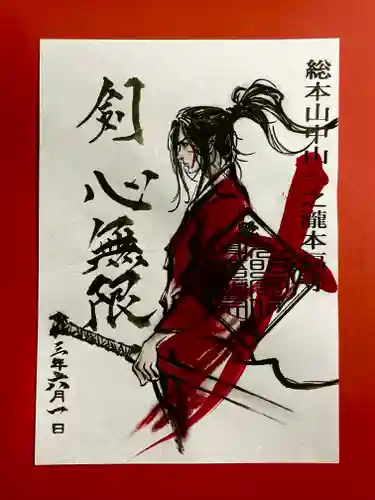 総本山中山
之瀧本
剣心無限
三年六月一日